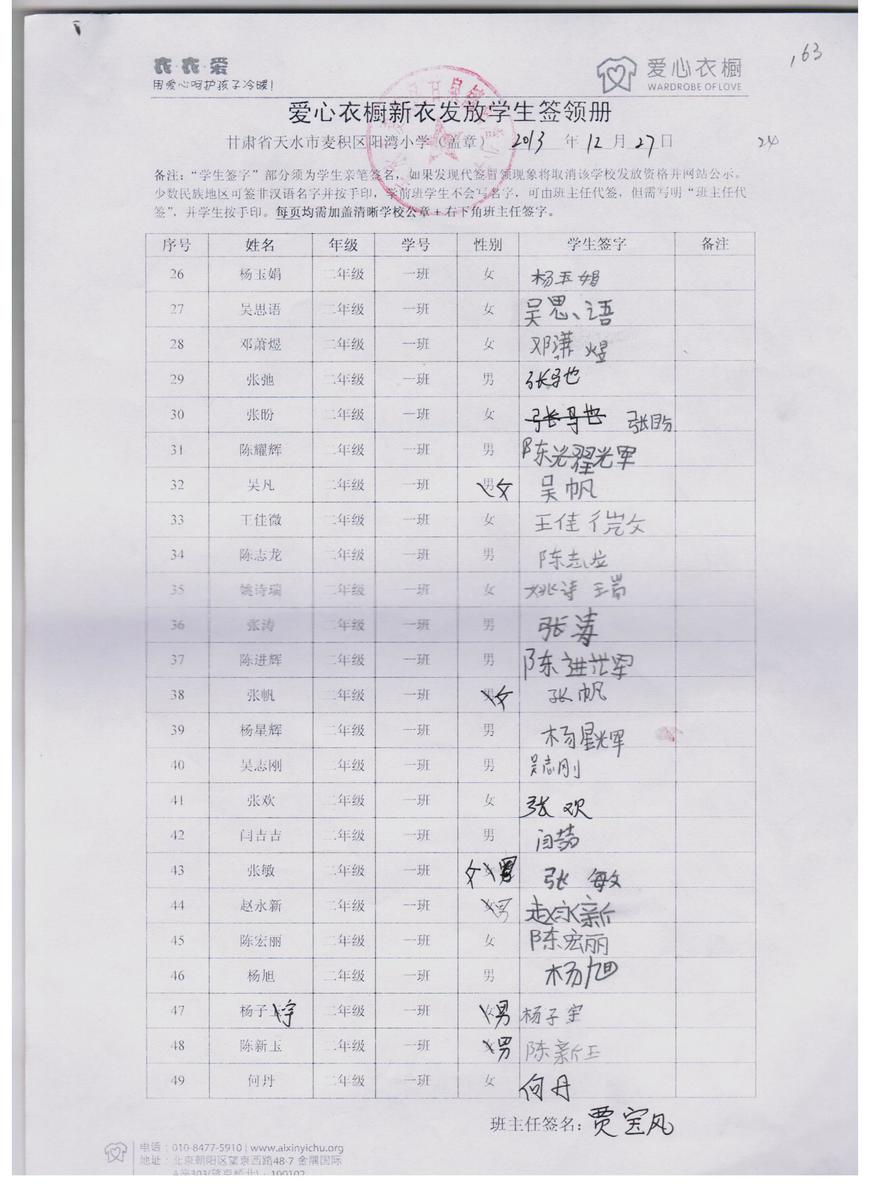 衣·衣·爱
用爱心呵护孩子冷暖!
爱心衣橱
WARDROBE OF LOVE
163
爱心衣橱新衣发放学生签领册
甘肃省天水市麦积区阳湾小学(盖章) 2013 年 12 月 27 日
24
备注:“学生签字”部分须为学生亲笔签名,如果发现代签冒领现象将取消该学校发放资格并网站公示。
少数民族地区可签非汉语名字并按手印,学前班学生不会写名字,可由班主任代签,但需写明“班主任代
签”,并学生按手印。每页均需加盖清晰学校公章+右下角班主任签字。
序号 姓名 年级 学号 性别 学生签字 备注
26 杨玉娟 二年级 一班 女 杨玉娟
27 吴思语 二年级 一班 女 吴思语
28 邓萧煜 二年级 一班 女 邓潇煜
29 张弛 二年级 一班 男 张驰
30 张盼 二年级 一班 女 张驰 张盼
31 陈耀辉 二年级 一班 男 陈耀辉
32 吴凡 二年级 一班 男 女 吴帆
33 王佳微 二年级 一班 女 王佳微
34 陈志龙 二年级 一班 男 陈志龙
35 姚诗瑞 二年级 一班 女 姚诗瑞
36 张涛 二年级 一班 男 张涛
37 陈进辉 二年级 一班 男 陈进辉
38 张帆 二年级 一班 男 女 张帆
39 杨星辉 二年级 一班 男 杨星辉
40 吴志刚 二年级 一班 男 吴志刚
41 张欢 二年级 一班 女 张欢
42 闫吉吉 二年级 一班 男 闫喆
43 张敏 二年级 一班 女 女 男 张敏
44 赵永新 二年级 一班 女 男 赵永新
45 陈宏丽 二年级 一班 女 陈宏丽
46 杨旭 二年级 一班 男 杨旭
47 杨子 宇 二年级 一班 女 男 杨子宇
48 陈新玉 二年级 一班 女 男 陈新玉
49 何丹 二年级 一班 女 何丹
班主任签名: 贾宝凤
电话:010-8477-5910 | www.aixinyichu.org
地址:北京朝阳区望京西路48-7 金隅国际